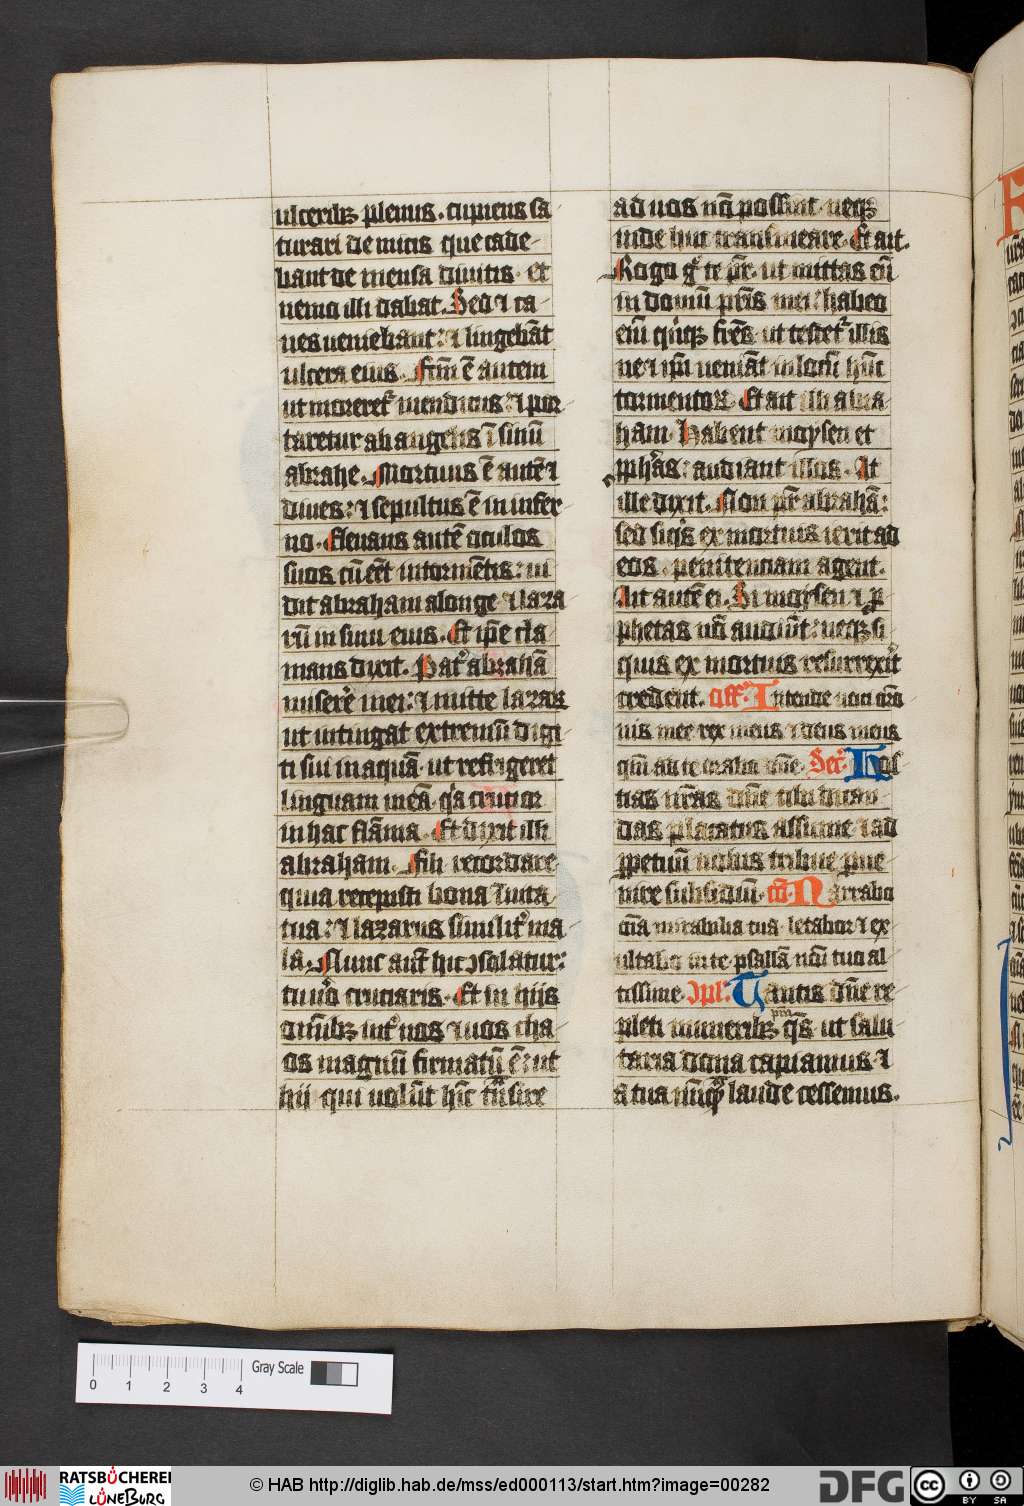 ulceribꝫ plenus. cupiens sa
turari de micis que cade-
bant de mensa diuitis. et
nemo illi dabat. Sed ⁊ ca-
nes veniebant: ⁊ lingebāt
ulcera eius. Fcm̄ ē autem
ut moreret᷑ mendicus: ⁊ por
taretur ab angelis ī sinū
abrahe. Mortuus ē autē ⁊
diues: ⁊ sepultus ē in infer
no. Eleuans autē oculos
suos cū eēt in tormētis: ui
dit abraham alonge ⁊ laza
rū in sinu eius. Et ip̄e cla
mans dixit. Pat᷑ abrahā
miserē mei: ⁊ mitte lazaꝝ
ut intingat extremū digi
ti sui in aquā. ut refrigeret
linguam meā. q̄a crucior
in hac flāma. Et dixit illi
abraham. Fili recordare
quia recepisti bona ī uita
tua: ⁊ lazarus similit᷑ ma
la. Nunc aut̄ hic ꝯsolatur:
tu u̓o cruciaris. Et in hijs
om̄ibꝫ int᷑ nos ⁊ uos cha
os magnū firmatū ē: ut
hij qui uolūt hīc trāsire
ad uos nō possint. neqꝫ
inde huc transmeare. Et ait.
Rogo g̊ te pr̄. ut mittas eū
in domū pr̄is mei: habeo
eni̅ qu̓iqꝫ fr̄es ut testet᷑ illis
ne ⁊ ip̄i ueniāt in locū hūc
tormentoꝝ. Et ait illi abra
ham. Habent moysen et
ꝓph̄as: audiant illos. At
ille dixit. Non pr̄ abrahā:
sed siq̓s ex mortuis ierit ad
eos. penitenciam agent.
Ait autē ei. Si moysen ⁊ ꝓ
phetas nō audiūt: neqꝫ si
quis ex mortuis resurrexi̓t
credent. Off̄. Intende uoci orō
nis mee rex meus ⁊ deus meus
qm̄ ad te orabo dn̄e. Secͬ. Hos
tias nr̄as dn̄e tibi dican
das placatus assume. ⁊ ad
ꝑpetuū nobis tribue ꝓue
nire subsidiū. cō. Narrabo
om̄ia mirabilia tua. letabor ⁊ ex
ultabo in te psallā nōi tuo al
tissime. Cpl̄. Tantis dn̄e re
pleti muneribꝫ. q̄s ut salu
taria dona capiamus. ⁊
a tua nūqᷓ laude cessemus.
Gray Scale
0 1 2 3 4
RATSBÜCHEREI
LÜNEBURG
© HAB http://diglib.hab.de/mss/ed000113/start.htm?image=00282
DFG
cc
BY SA